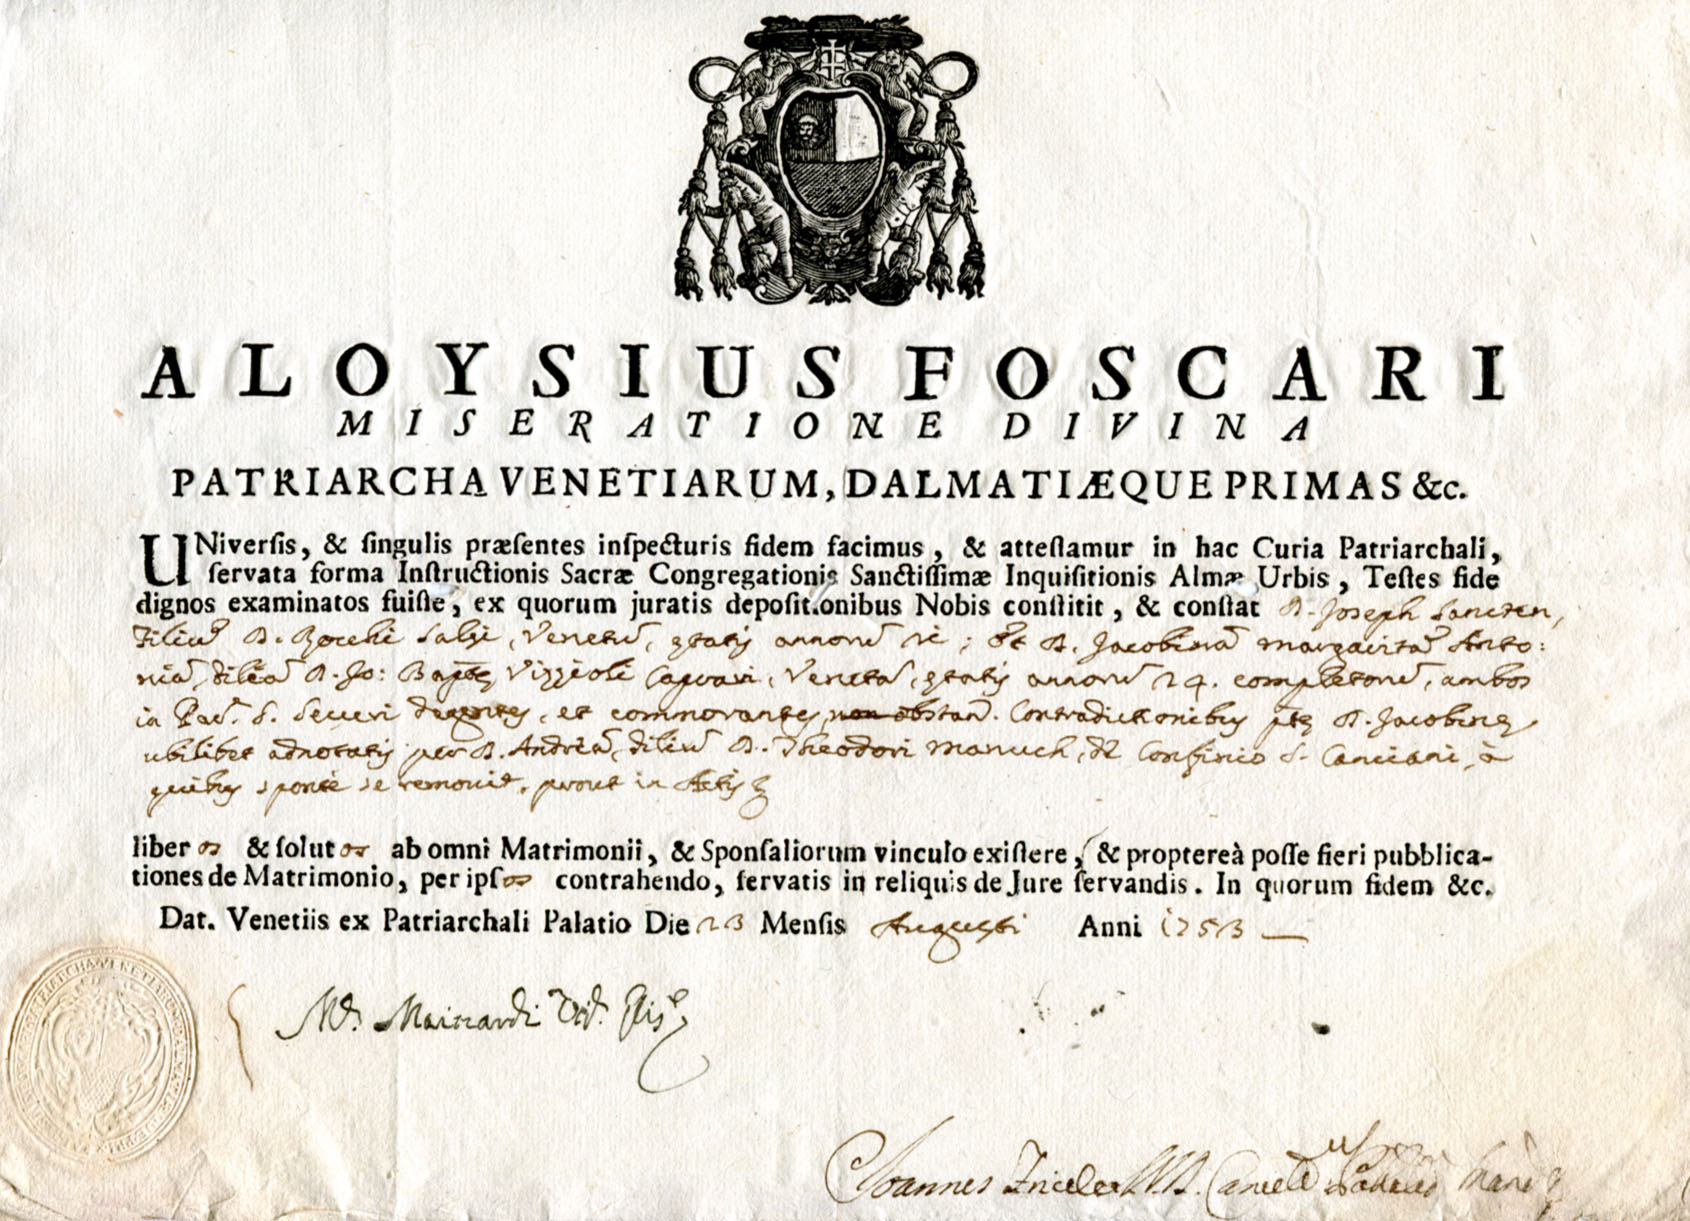 ALOYSIUS FOSCARI
MISERATIONE DIVINA
PATRIARCHA VENETIARUM, DALMATIÆQUE PRIMAS &c.
UNiverſis, & ſingulis præſentes inſpecturis fidem facimus, & atteſtamur in hac Curia Patriarchali,
ſervata forma Inſtructionis Sacræ Congregationis Sanctiſſimæ Inquiſitionis Almæ Urbis, Teſtes fide
dignos examinatos fuiſſe, ex quorum juratis depoſitionibus Nobis conſtitit, & conſtat D. Joseph
filiũ D. Venetũ, ętatis annorũ ; et D. Jacobinã Margaritã Anto:
niã, filiã D. Jo: Bapte Venetã, ętatis annorũ 24. completorũ, ambos
in S. Severi degentes, et commorantes, non obstan. Contradictionibus D. Jacobinę
ubilibet adnotatis per D. Andreã, filiũ D. Theodori Manuch, de Confinio S. Canciani, à
quibus sponte se removit, prout in Actis
liberos & ſolutos ab omni Matrimonii, & Sponſaliorum vinculo exiſtere, & propterea̔ poſſe fieri pubblica-
tiones de Matrimonio, per ipſos contrahendo, ſervatis in reliquis de Jure ſervandis. In quorum fidem &c.
Dat. Venetiis ex Patriarchali Palatio Die 23 Menſis Augusti Anni 1753
Joannes